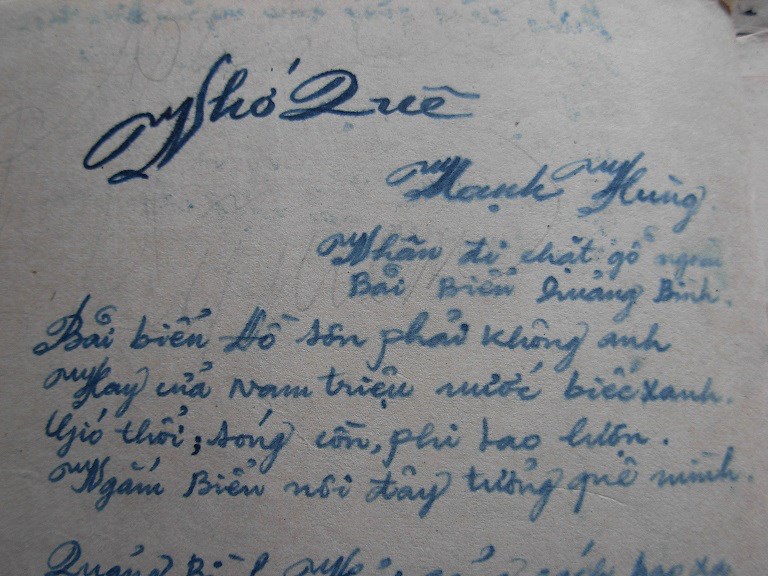 Nhớ Quê
Mạnh Hùng
Nhân đi chặt gỗ ngoài
Bãi Biển Quảng Bình.
Bãi biển Đồ Sơn phải không anh
Hay cửa Nam triệu nước biếc xanh.
Gió thổi; sóng cồn, phi lao lượn.
Ngắm Biển nơi đây tưởng quê mình.
Quảng Bình